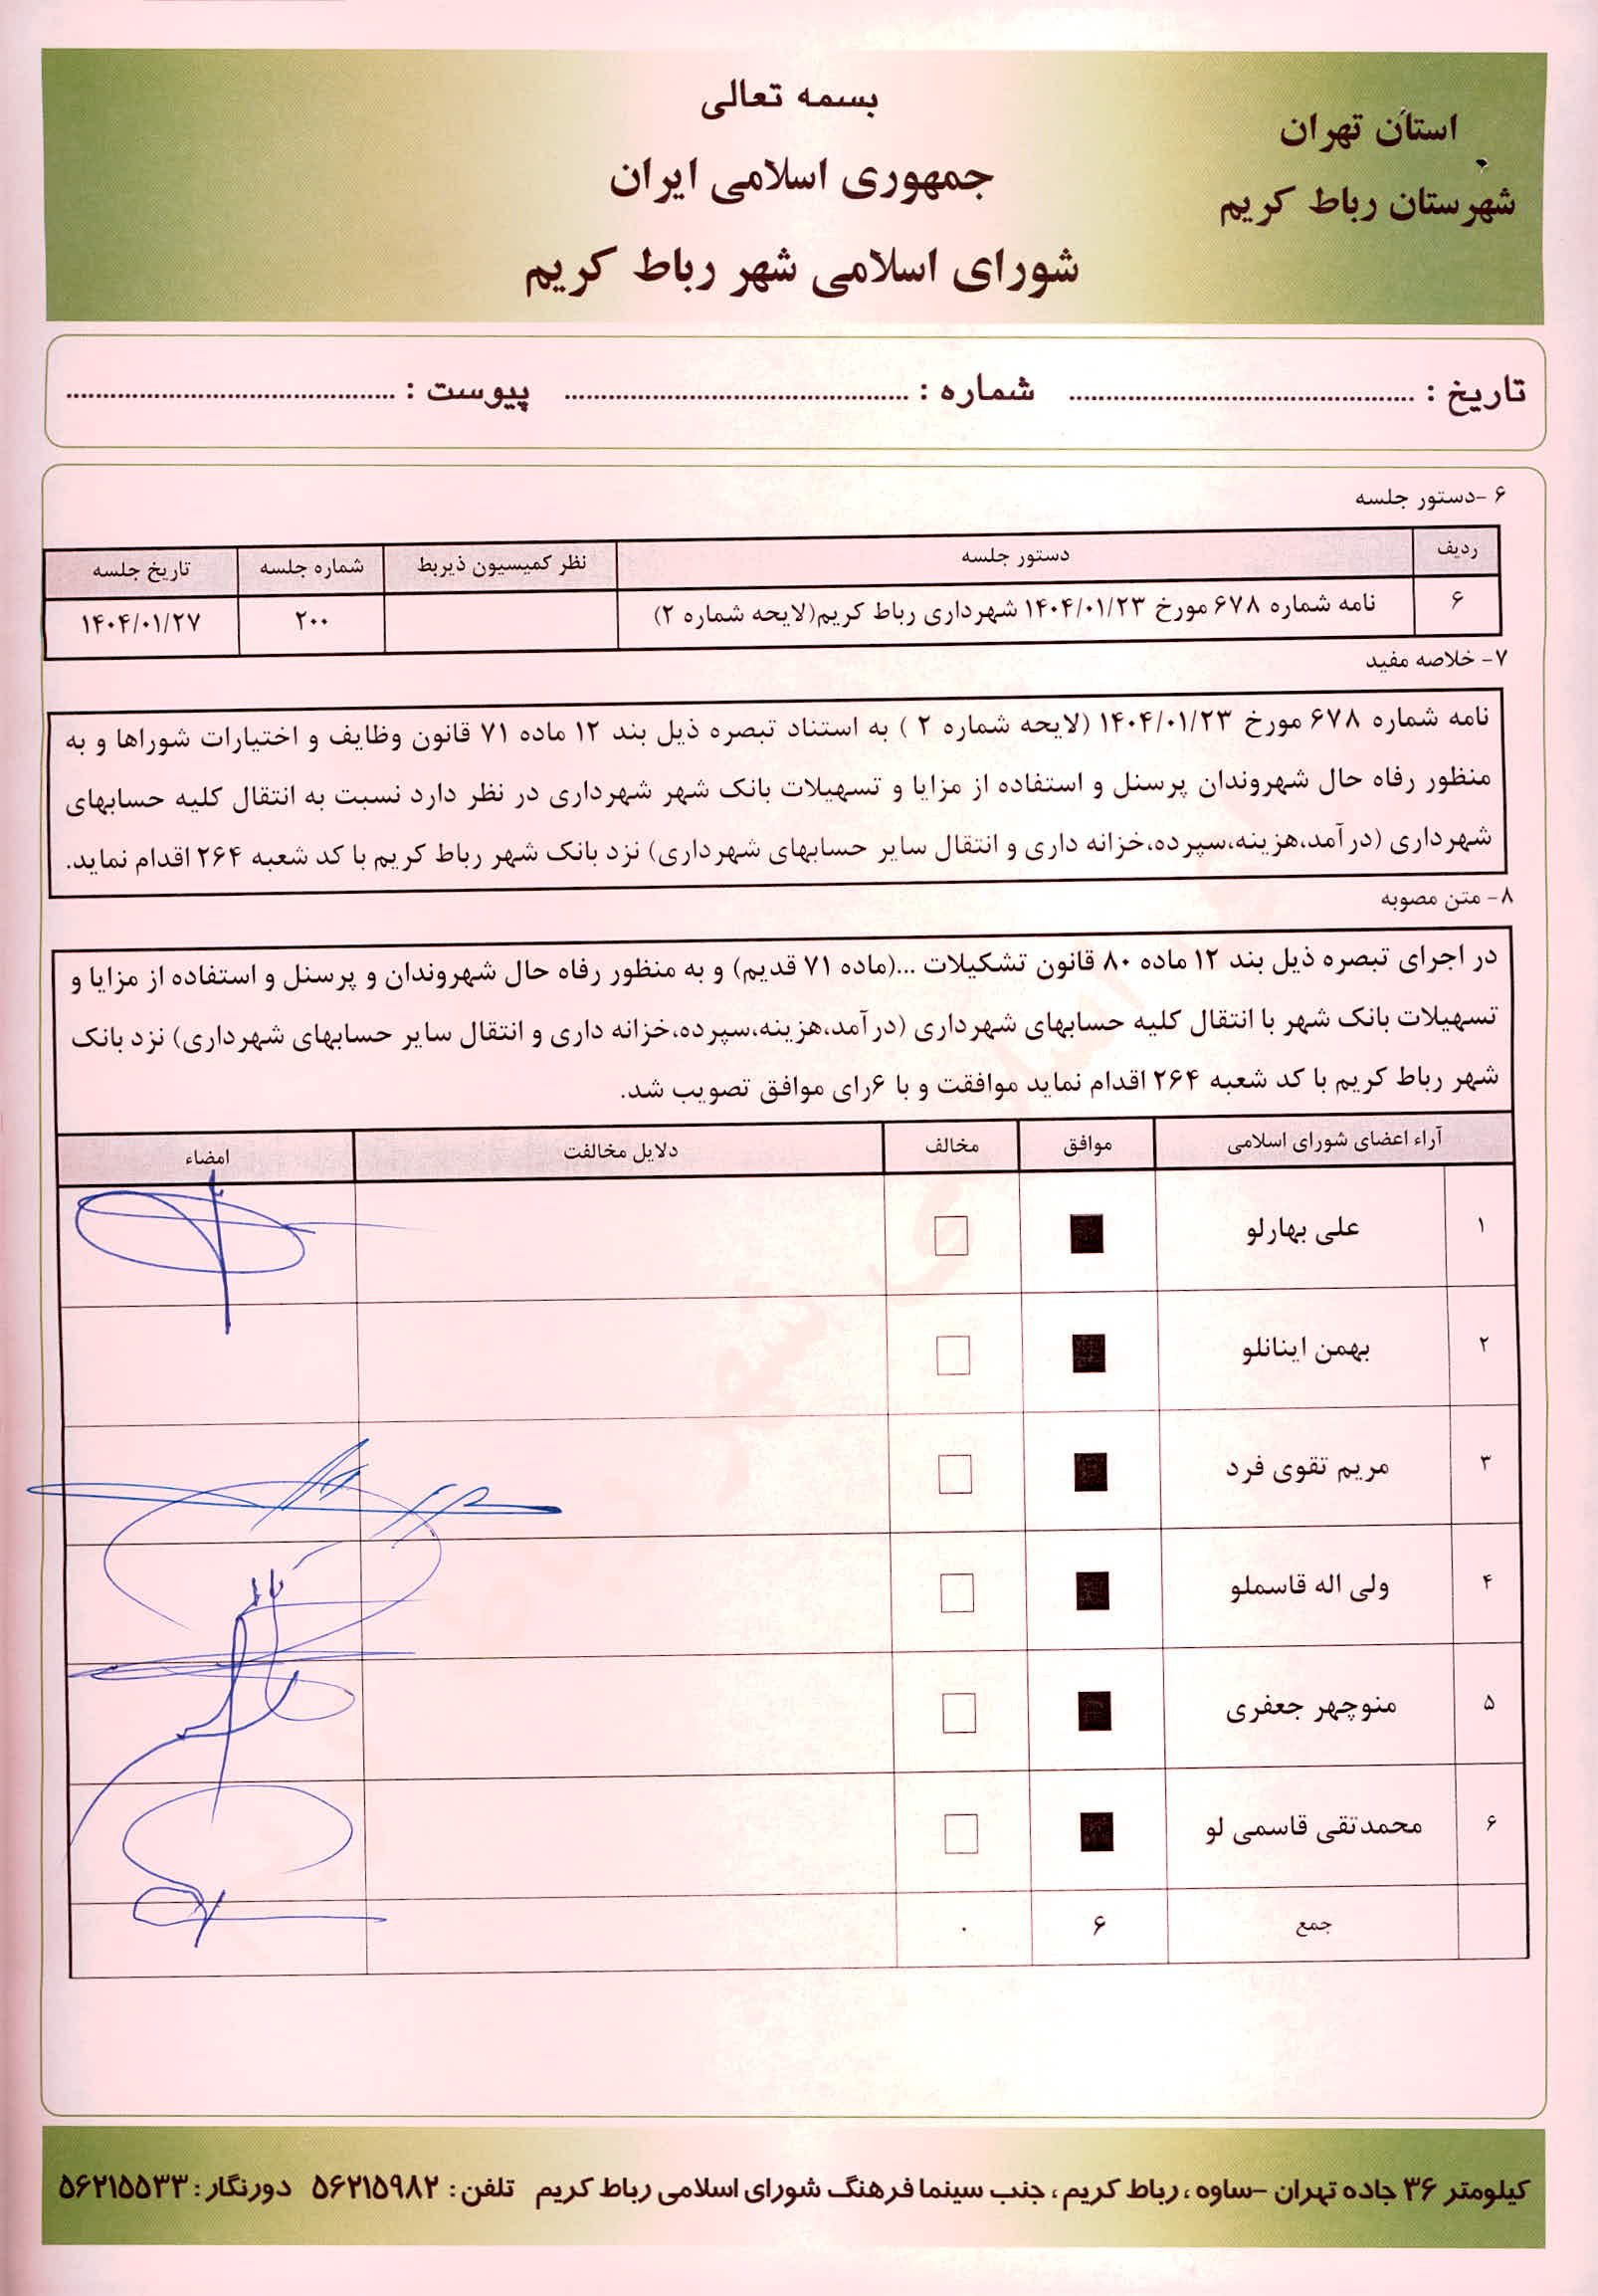 بسمه تعالی
استان تهران
جمهوری اسلامی ایران
شهرستان رباط کریم
شورای اسلامی شهر رباط کریم
تاریخ : ........................ شماره : ........................ پیوست : ........................
۶ -دستور جلسه
ردیف دستور جلسه نظر کمیسیون ذیربط شماره جلسه تاریخ جلسه
۶ نامه شماره ۶۷۸ مورخ ۱۴۰۴/۰۱/۲۳ شهرداری رباط کریم(لایحه شماره ۲) ۲۰۰ ۱۴۰۴/۰۱/۲۷
۷- خلاصه مفید
نامه شماره ۶۷۸ مورخ ۱۴۰۴/۰۱/۲۳ (لایحه شماره ۲ ) به استناد تبصره ذیل بند ۱۲ ماده ۷۱ قانون وظایف و اختیارات شوراها و به
منظور رفاه حال شهروندان پرسنل و استفاده از مزایا و تسهیلات بانک شهر شهرداری در نظر دارد نسبت به انتقال کلیه حسابهای
شهرداری (درآمد،هزینه،سپرده،خزانه داری و انتقال سایر حسابهای شهرداری) نزد بانک شهر رباط کریم با کد شعبه ۲۶۴ اقدام نماید.
۸- متن مصوبه
در اجرای تبصره ذیل بند ۱۲ ماده ۸۰ قانون تشکیلات ...(ماده ۷۱ قدیم) و به منظور رفاه حال شهروندان و پرسنل و استفاده از مزایا و
تسهیلات بانک شهر با انتقال کلیه حسابهای شهرداری (درآمد،هزینه،سپرده،خزانه داری و انتقال سایر حسابهای شهرداری) نزد بانک
شهر رباط کریم با کد شعبه ۲۶۴ اقدام نماید موافقت و با ۶رای موافق تصویب شد.
آراء اعضای شورای اسلامی موافق مخالف دلایل مخالفت امضاء
۱ علی بهارلو
۲ بهمن اینانلو
۳ مریم تقوی فرد
۴ ولی اله قاسملو
۵ منوچهر جعفری
۶ محمدتقی قاسمی لو
جمع ۶ ۰
کیلومتر ۳۶ جاده تهران -ساوه ، رباط کریم ، جنب سینما فرهنگ شورای اسلامی رباط کریم تلفن : ۵۶۲۱۵۹۸۲ دورنگار : ۵۶۲۱۵۵۳۳